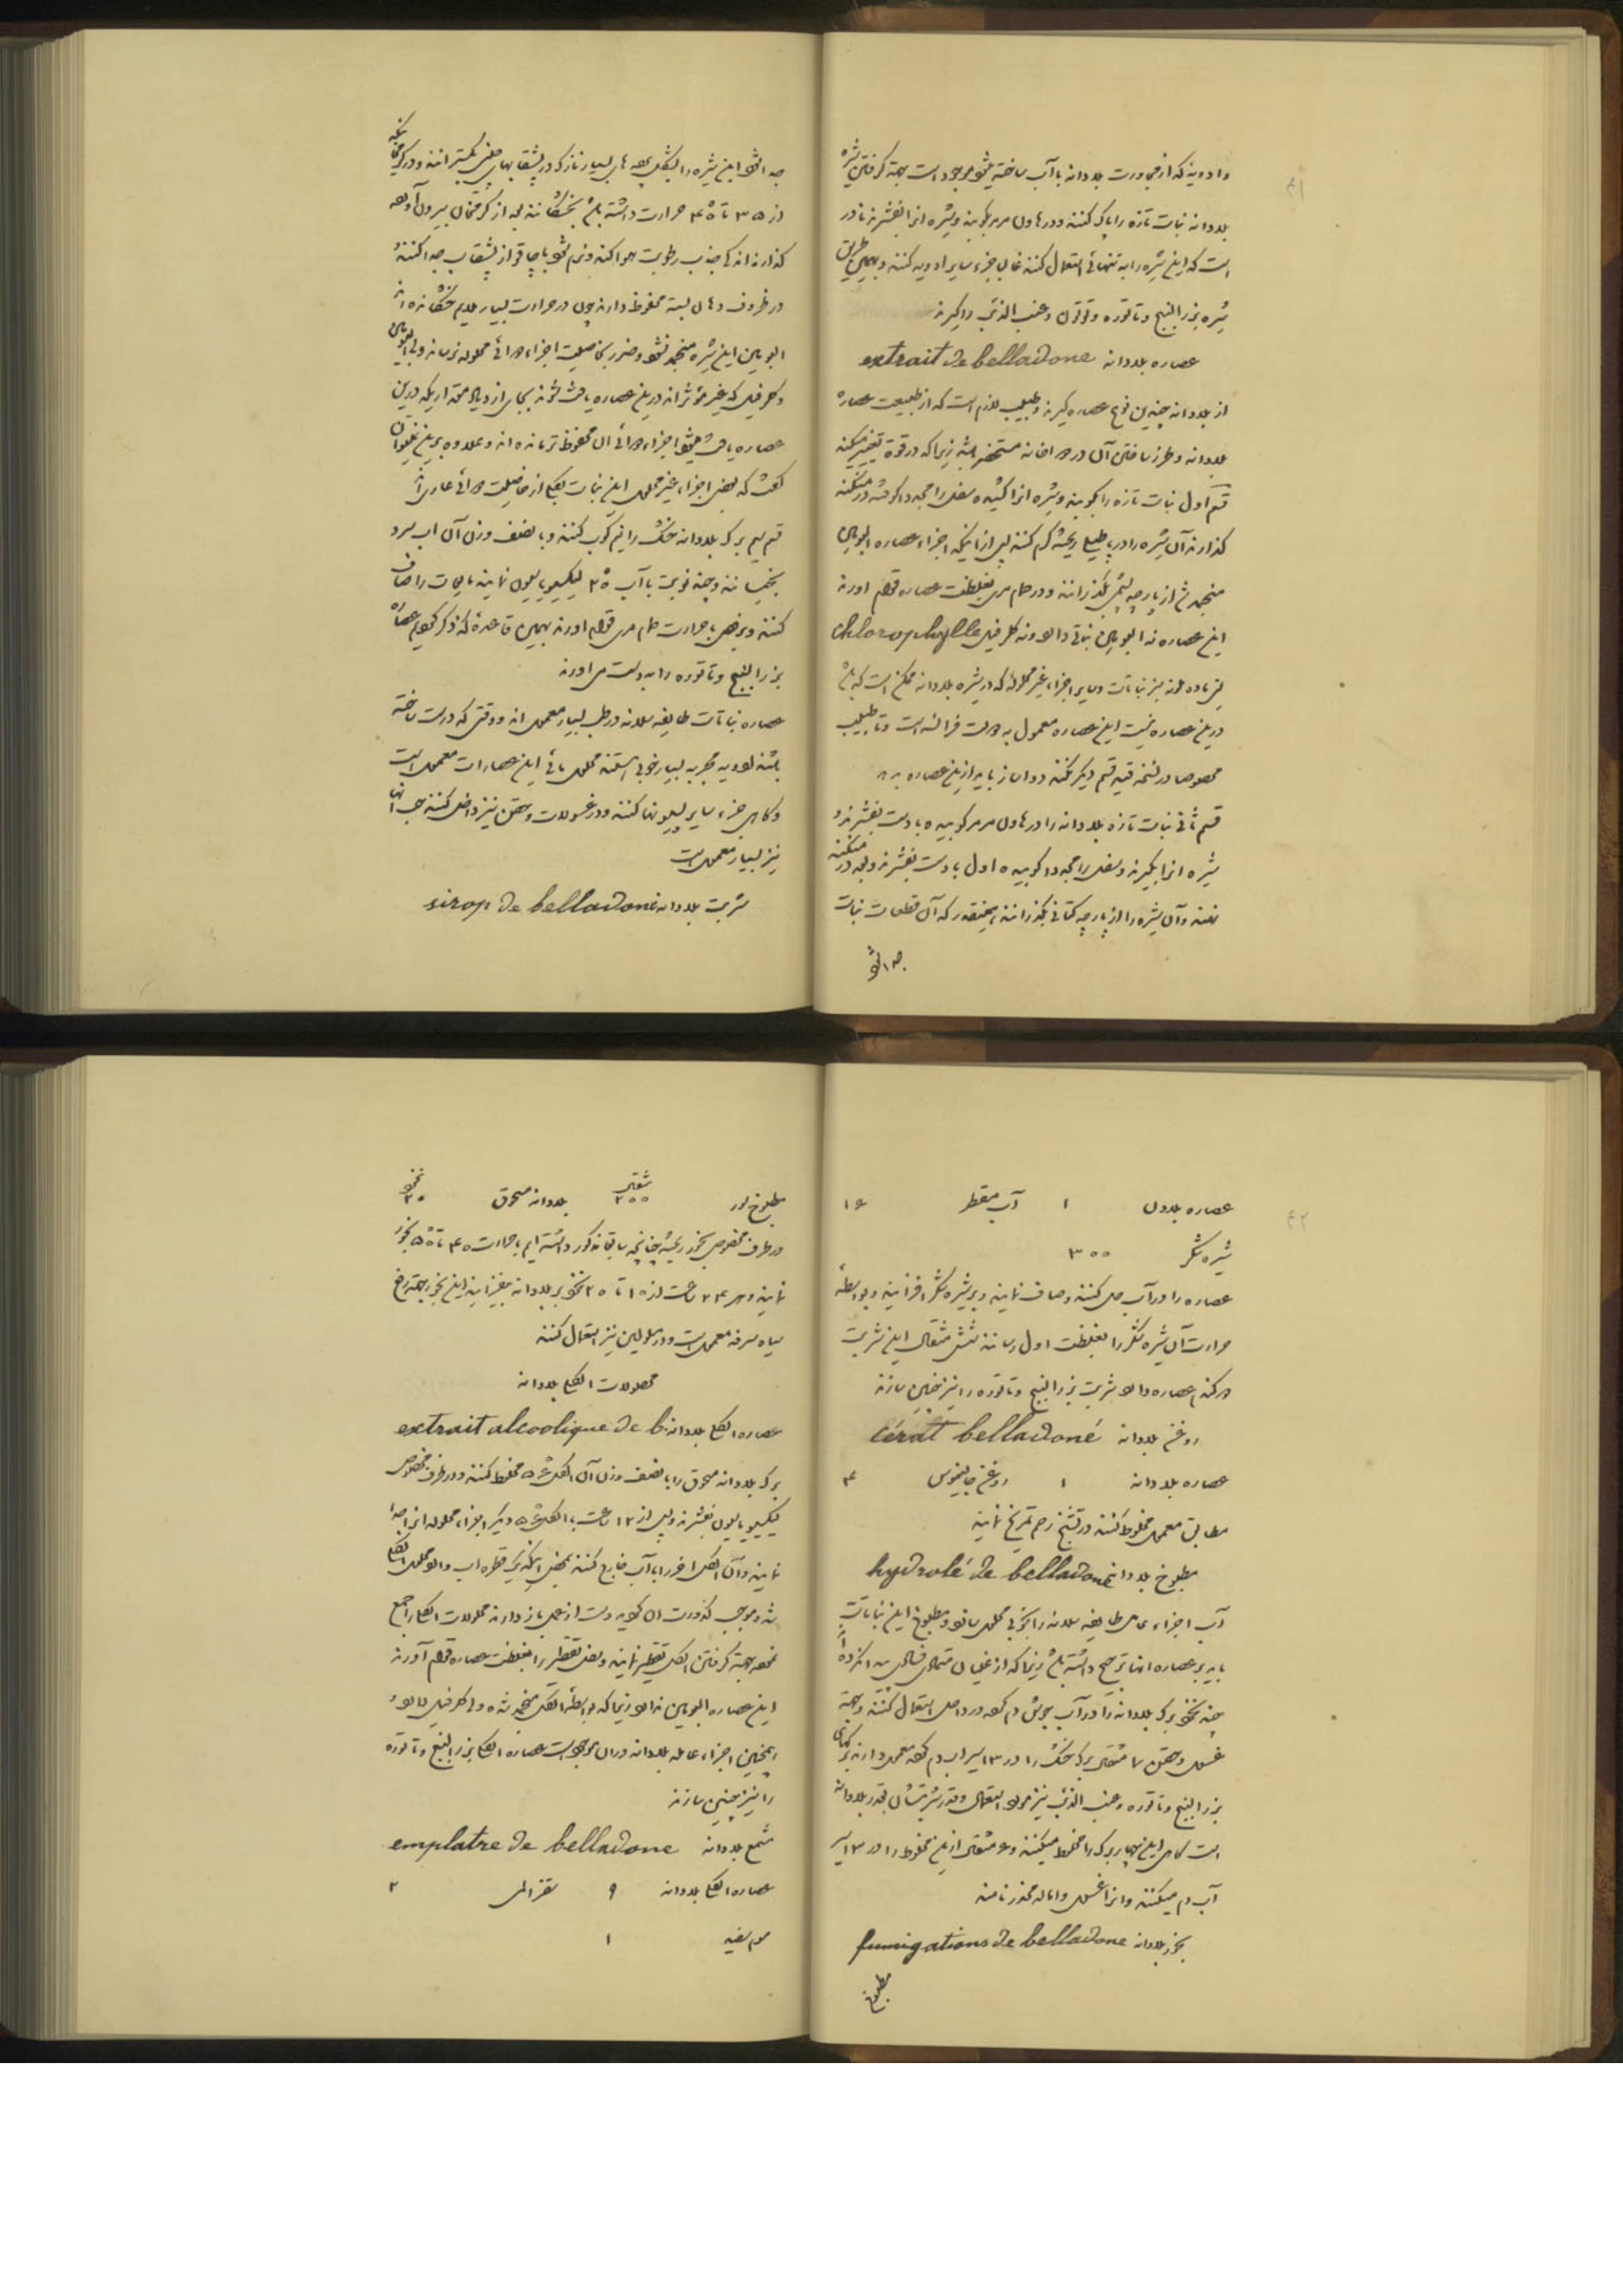 وادویه که از مجاورت بلادانه با آب ساخته میشود موجود است بجهة گرفتن شیره
بلادانه نبات تازه را پاک کنند و در هاون مرمر بکوبند و شیره انرا بفشرند نادر
است که این شیره را به تنهائی استعمال کنند غالب جزء سایر ادویه کنند و بهمین طریق
شیره بزرالبنج و تاتوره و توتون و عنب الذئب را گیرند
عصاره بلادانه extrait de belladone
از بلادانه چندین نوع عصاره گیرند و طبیب لازم است که از طبیعت عصاره
بلادانه و طرز ساختن آن در دواخانه مستحضر باشد زیرا که در قوة تغییر میکند
قسم اول نبات تازه را بکوبند و شیره انرا کشیده
گذارند آن شیره را در پاطیلی ریخته گرم کنند پس از اینکه اجزاء عصاره البومین
منجمد شد از پارچه پشمی بگذرانند و در حمام مری بغلظت عصاره قوام اورند
این عصاره نه البومین نباتی دارد و نه کلرفیل chlorophylle
یعنی ماده ملونه سبز نباتات و سایر اجزاء غیر محلوله که در شیره بلادانه ممکن است که باشد
در این عصاره نیست این عصاره معمول به دولت فرانسه است و تا طبیب
مخصوصا در نسخه قید قسم دیگر نکند دواساز باید از این عصاره بدهد
قسم ثانی نبات تازه بلادانه را در هاون مرمر کوبیده با دست بفشرند و
شیره انرا بگیرند و ثفل را مجددا کوبیده اول با دست بفشرند و بعد در منگنه
نهند و آن شیره را از پارچه کتانی بگذرانند همینقدر که آن قطعات نبات
جدا شود
جدا شود این شیره را بشکل های بسیار نازک در بشقابهای چینی بگسترانند و در گرمخانه
از ۳۵ تا ۴۵ حرارت داشته باشد بخشکانند بعد از گرمخانه بیرون آورده
گذارند اندکی جذب رطوبت هوا کند و نرم شود با چاقو از بشقاب جدا کنند و
در ظروف دهان بسته محفوظ دارند چون در حرارت بسیار ملایم خشکانده اند
البومین این شیره منجمد نشود و ضرر بخاصیت اجزاء دوائی محلوله نرساند ولی البومین
و کلرفیل که غیر مؤثراند در این عصاره یافت شوند بجای ازدیاد مقداریکه در این
عصاره یافت میشود اجزاء دوائی ان محفوظ تر مانده اند و علاوه بر این نمیتوان
گفت که بعض اجزاء غیر محلول این نبات بکلی از خاصیت دوائی عاری اند
قسم سیم برک بلادانه خشک را نیم کوب کنند و با نصف وزن آن اب سرد
بخیسانند و چند نوبت با آب ۲۵ لیکسیویاسیون نمایند مایعات را صاف
کنند و بعوض با حرارت حمام مری قوام اورند بهمین قاعده که ذکر کردیم عصاره
بزرالبنج و تاتوره را بدست می اورند
عصاره نباتات طایفه سلانه در طب بسیار معمول اند و وقتی که درست ساخته
باشند ادویه مجربه بسیار خوبی هستند محلول مائی این عصارات معمول است
و گاهی جزء سایر پیلولها کنند و در غسولات و حقن نیز داخل کنند حب انها
نیز بسیار معمول است
شربت بلادانه sirop de belladone
عصاره بلادن ۱ آب مقطر ۱۶
شیره شکر ۳۰۰
عصاره را در آب حل کنند و صاف نمایند و بر شیره شکر افزایند و بواسطه
حرارت آن شیره شکر را بغلظت اول رسانند شش مثقال این شربت
دو گندم عصاره دارد شربت بزرالبنج و تاتوره را نیز چنین سازند
روغن بلادانه cérat belladoné
عصاره بلادانه ۱ روغن جالینوس ۴
مطابق معمول مخلوط کنند در تشنج رحم تمریخ نمایند
مطبوخ بلادانه hydrolé de belladone
آب اجزاء عامل طایفه سلانه را بخوبی محلول سازد و مطبوخ این نباتات
باید بر عصاره انها ترجیح داشته باشد زیرا که از غلیان متمادی
چند نخود برک بلادانه را در آب جوش دم کرده در داخل استعمال کنند و بجهة
غسول و حقن ۷ مثقال برک خشک را در ۱۳ سیر اب دم کرده معمول دارند برگهای
بزرالبنج و تاتوره و عنب الذئب نیز مورد استعمال و قدر شربتشان بقدر بلادانه
است گاهی این چهار برک را مخلوط میکنند و ۷ مثقال از این مخلوط را در ۱۳ سیر
آب دم میکنند و انرا غسول و اماله مخدر نامند
بخور بلادانه fumigations de belladone
مطبوخ
مطبوخ مثقال ۲۰۰ بلادانه مسحوق نخود ۲۰
در ظرف مخصوص بخور ریخته چنانچه سابقا مذکور داشته ایم با حرارت ۴۰ تا ۵۰ بخور
نمایند و هر ۲۴ ساعت از ۱۰ تا ۲۰ نخود بر بلادانه بیفزایند این بخور بجهة رفع
سیاه سرفه معمول است و در مسلولین نیز استعمال کنند
محصولات الکلی بلادانه
عصاره الکلی بلادانه extrait alcoolique de b.
برک بلادانه مسحوق را با نصف وزن آن الکل ۵۶ مخلوط کنند و در ظرف مخصوص
لیکسیویاسیون بفشرند و پس از ۱۲ ساعت با الکل ۵۶ دیگر اجزاء محلوله انرا جدا
نمایند و آن الکل اخر را با آب خارج کنند بمحض اینکه یک قطره اب وارد محلول الکلی
شد و موجب کدورت ان گردید دست از عمل باز دارند محلولات الکلی را جمع
نموده بجهة گرفتن الکل تقطیر نمایند و بعد تقطیر را بغلظت عصاره قوام آورند
این عصاره البومین ندارد زیرا که بواسطه الکل منجمد شده ولی کلرفیل دارد و
همچنین اجزاء عامله بلادانه در ان موجود است عصاره الکلی بزرالبنج و تاتوره
را نیز چنین سازند
مشمع بلادانه emplatre de belladone
عصاره الکلی بلادانه ۹ سقز المی ۲
موم سفید ۱